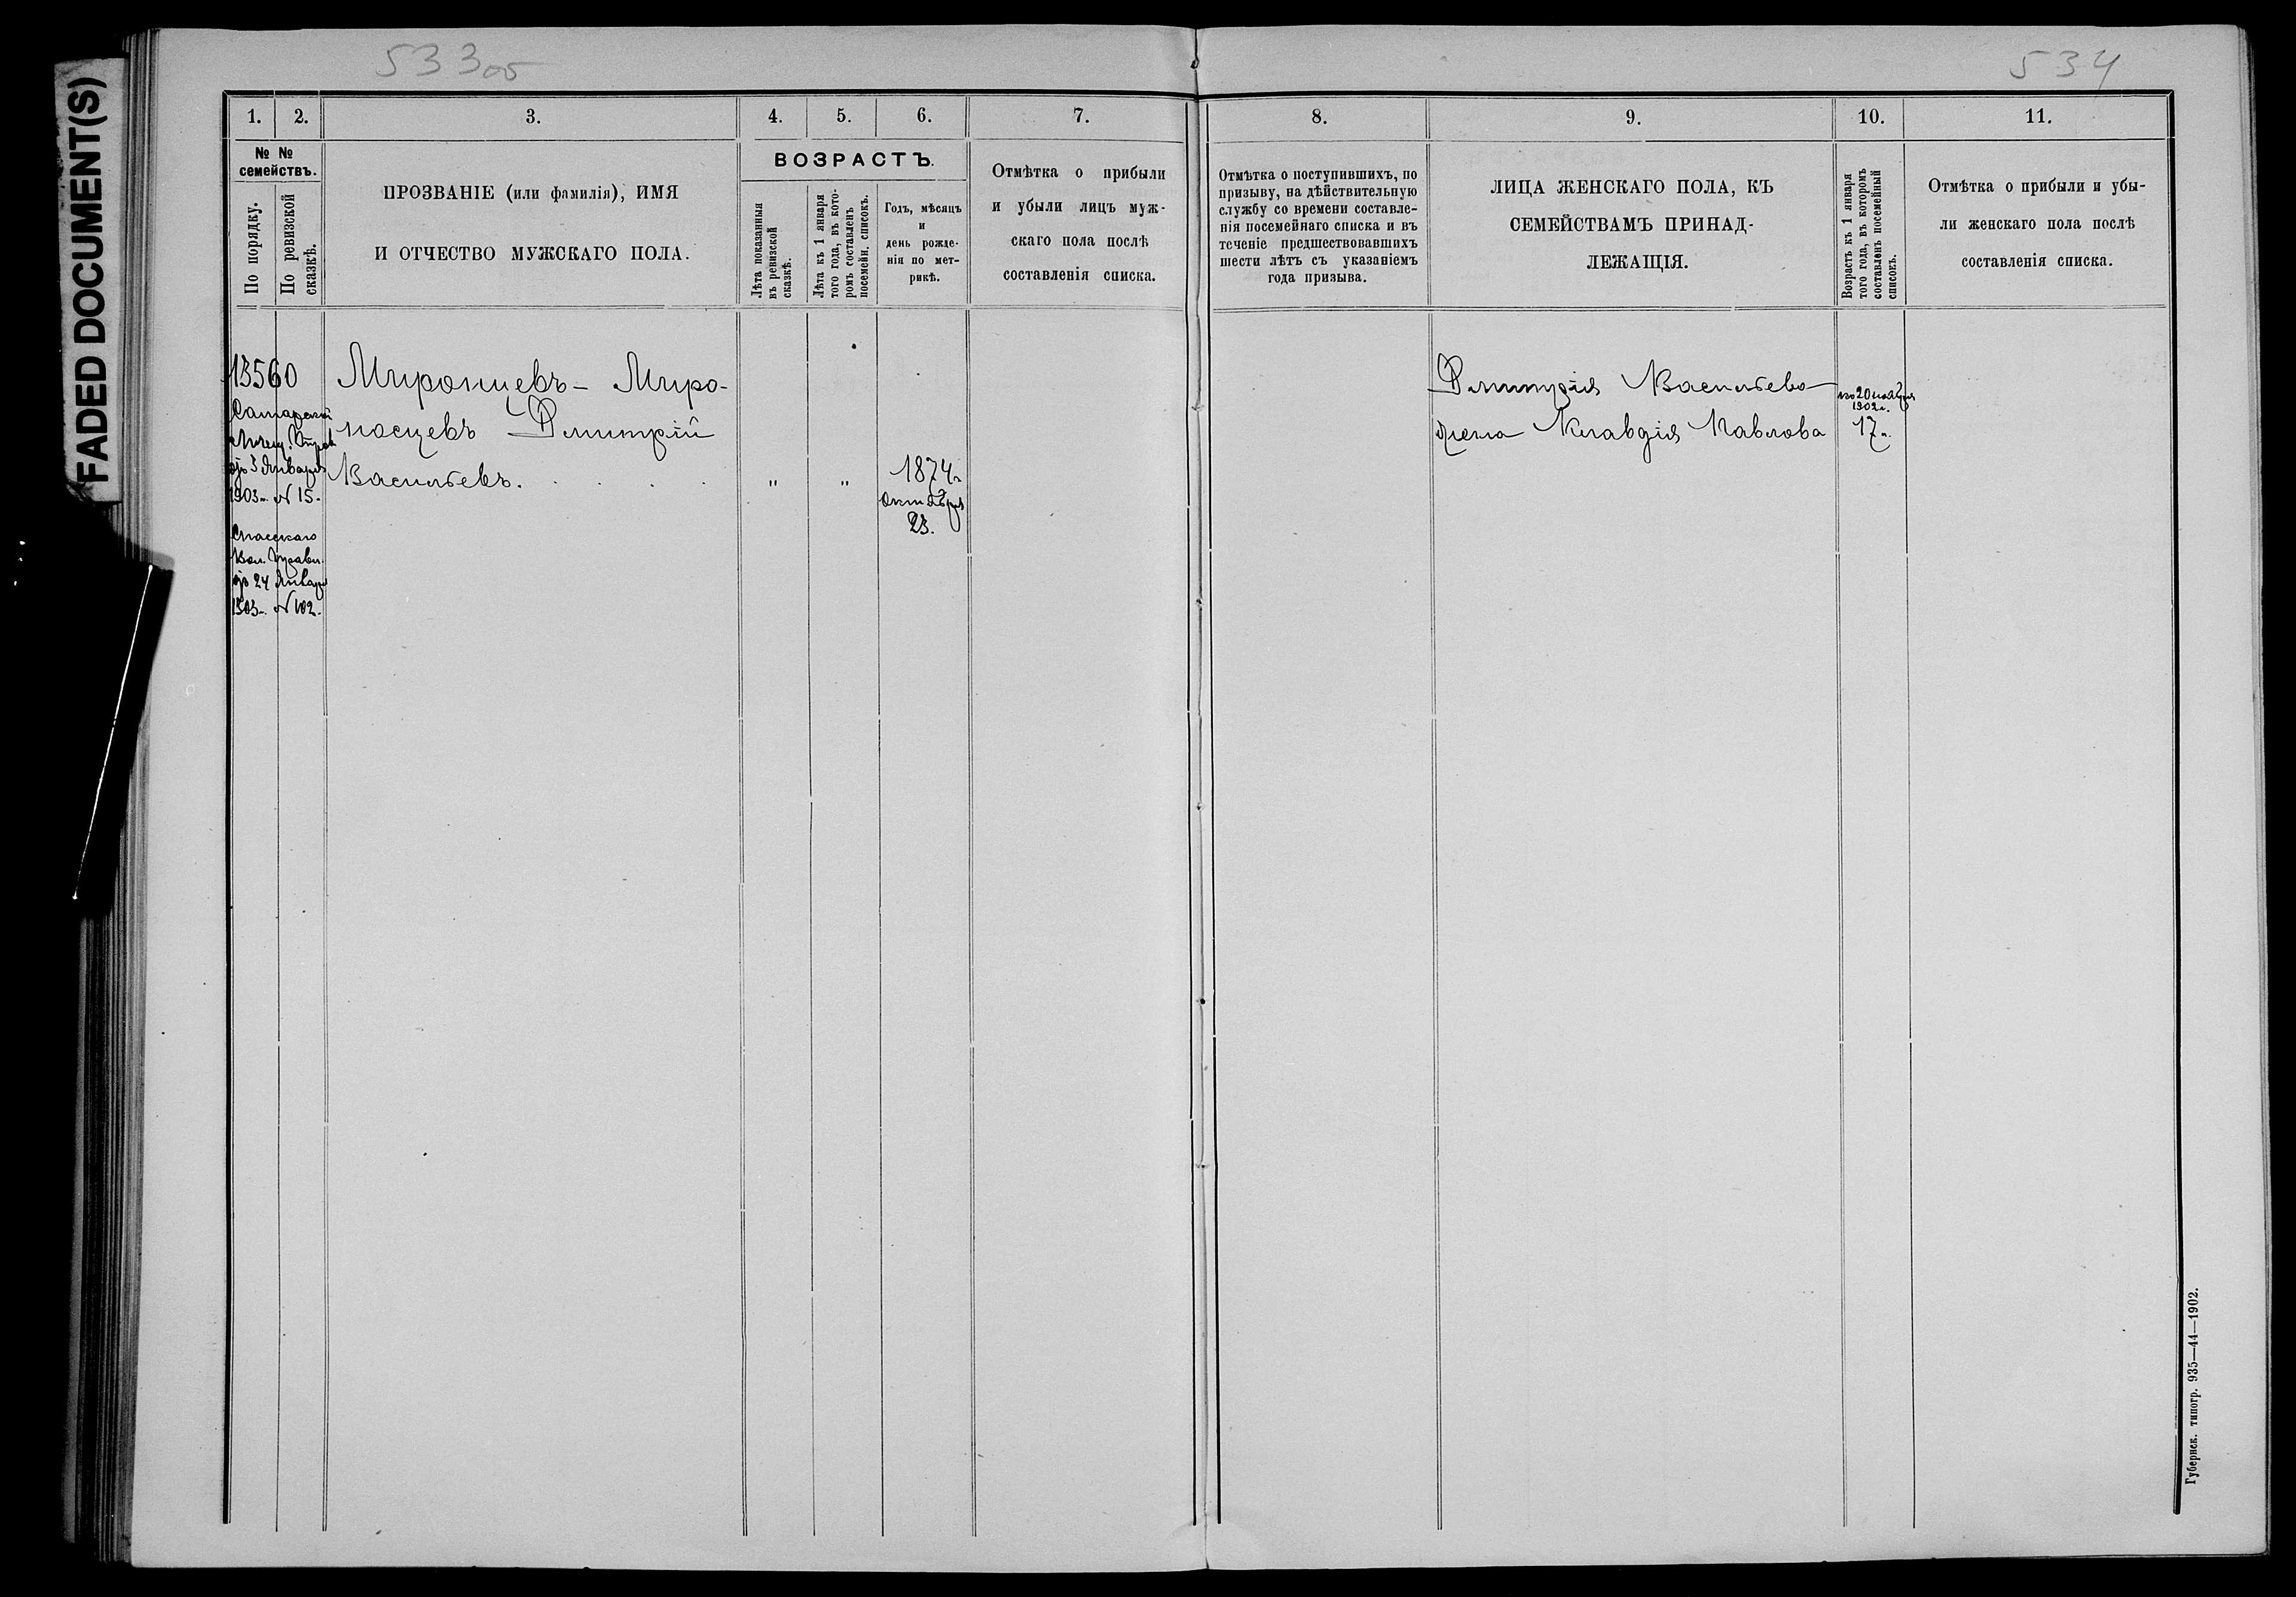 FADED DOCUMENT(S)
533об
534
1. 2. 3. 4. 5. 6. 7.
№ № семействъ.
По порядку.
По ревизской сказкѣ.
ПРОЗВАНІЕ (или фамилія), ИМЯ
И ОТЧЕСТВО МУЖСКАГО ПОЛА.
ВОЗРАСТЪ.
Лѣта показанныя
въ ревизской
сказкѣ.
Лѣта къ 1 января
того года, въ кото-
ромъ составленъ
посемейн. списокъ.
Годъ, мѣсяцъ
и
день рожде-
нія по мет-
рикѣ.
Отмѣтка о прибыли
и убыли лицъ муж-
скаго пола послѣ
составленія списка.
13560
Самарской
от 3 Января
1903 г. № 15.
Спасскаго
Вол. Правл.
от 24 Января
1903 г. № 102.
Миронцевъ – Миро-
носцевъ Дмитрій
Васильевъ. . . . .
" "
1874 г.
Октября
23.
8. 9. 10. 11.
Отмѣтка о поступившихъ, по
призыву, на дѣйствительную
службу со времени составле-
нія посемейнаго списка и въ
теченіе предшествовавшихъ
шести лѣтъ съ указаніемъ
года призыва.
ЛИЦА ЖЕНСКАГО ПОЛА, КЪ
СЕМЕЙСТВАМЪ ПРИНАД-
ЛЕЖАЩІЯ.
Возрастъ къ 1 января
того года, въ которомъ
составленъ посемейный
списокъ.
Отмѣтка о прибыли и убы-
ли женскаго пола послѣ
составленія списка.
Дмитрія Васильева
жена Клавдія Павлова
по 20 ноября
1902 г.
17 л.
Губернск. типогр. 935—44—1902.